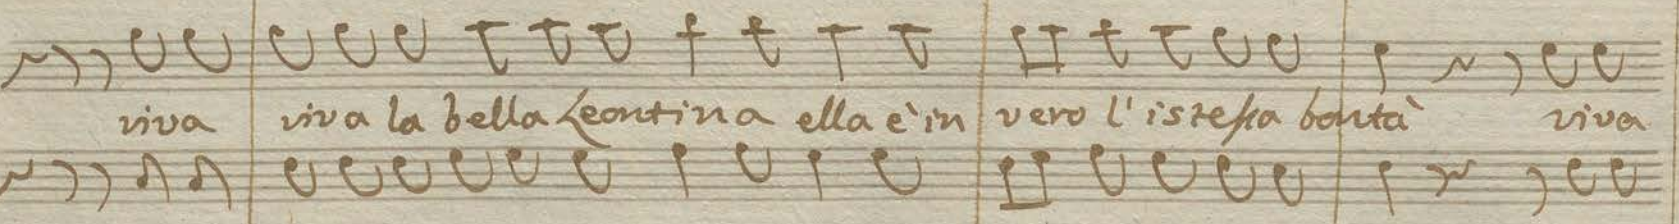 viva viva la bella Leontina ella è in vero l'istessa bontà viva